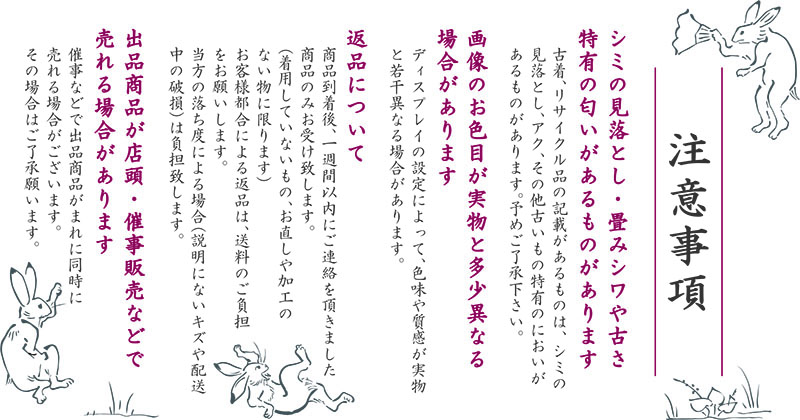 注意事項
シミの見落とし・畳みシワや古さ
特有の匂いがあるものがあります
古着、リサイクル品の記載があるものは、シミの
見落とし、アク、その他古いもの特有のにおいが
あるものがあります。予めご了承下さい。
画像のお色目が実物と多少異なる
場合があります
ディスプレイの設定によって、色味や質感が実物
と若干異なる場合があります。
返品について
商品到着後、一週間以内にご連絡を頂きました
商品のみお受け致します。
(着用していないもの、お直しや加工の
ない物に限ります)
お客様都合による返品は、送料のご負担
をお願いします。
当方の落ち度による場合(説明にないキズや配送
中の破損)は負担致します。
出品商品が店頭・催事販売などで
売れる場合があります
催事などで出品商品がまれに同時に
売れる場合がございます。
その場合はご了承願います。